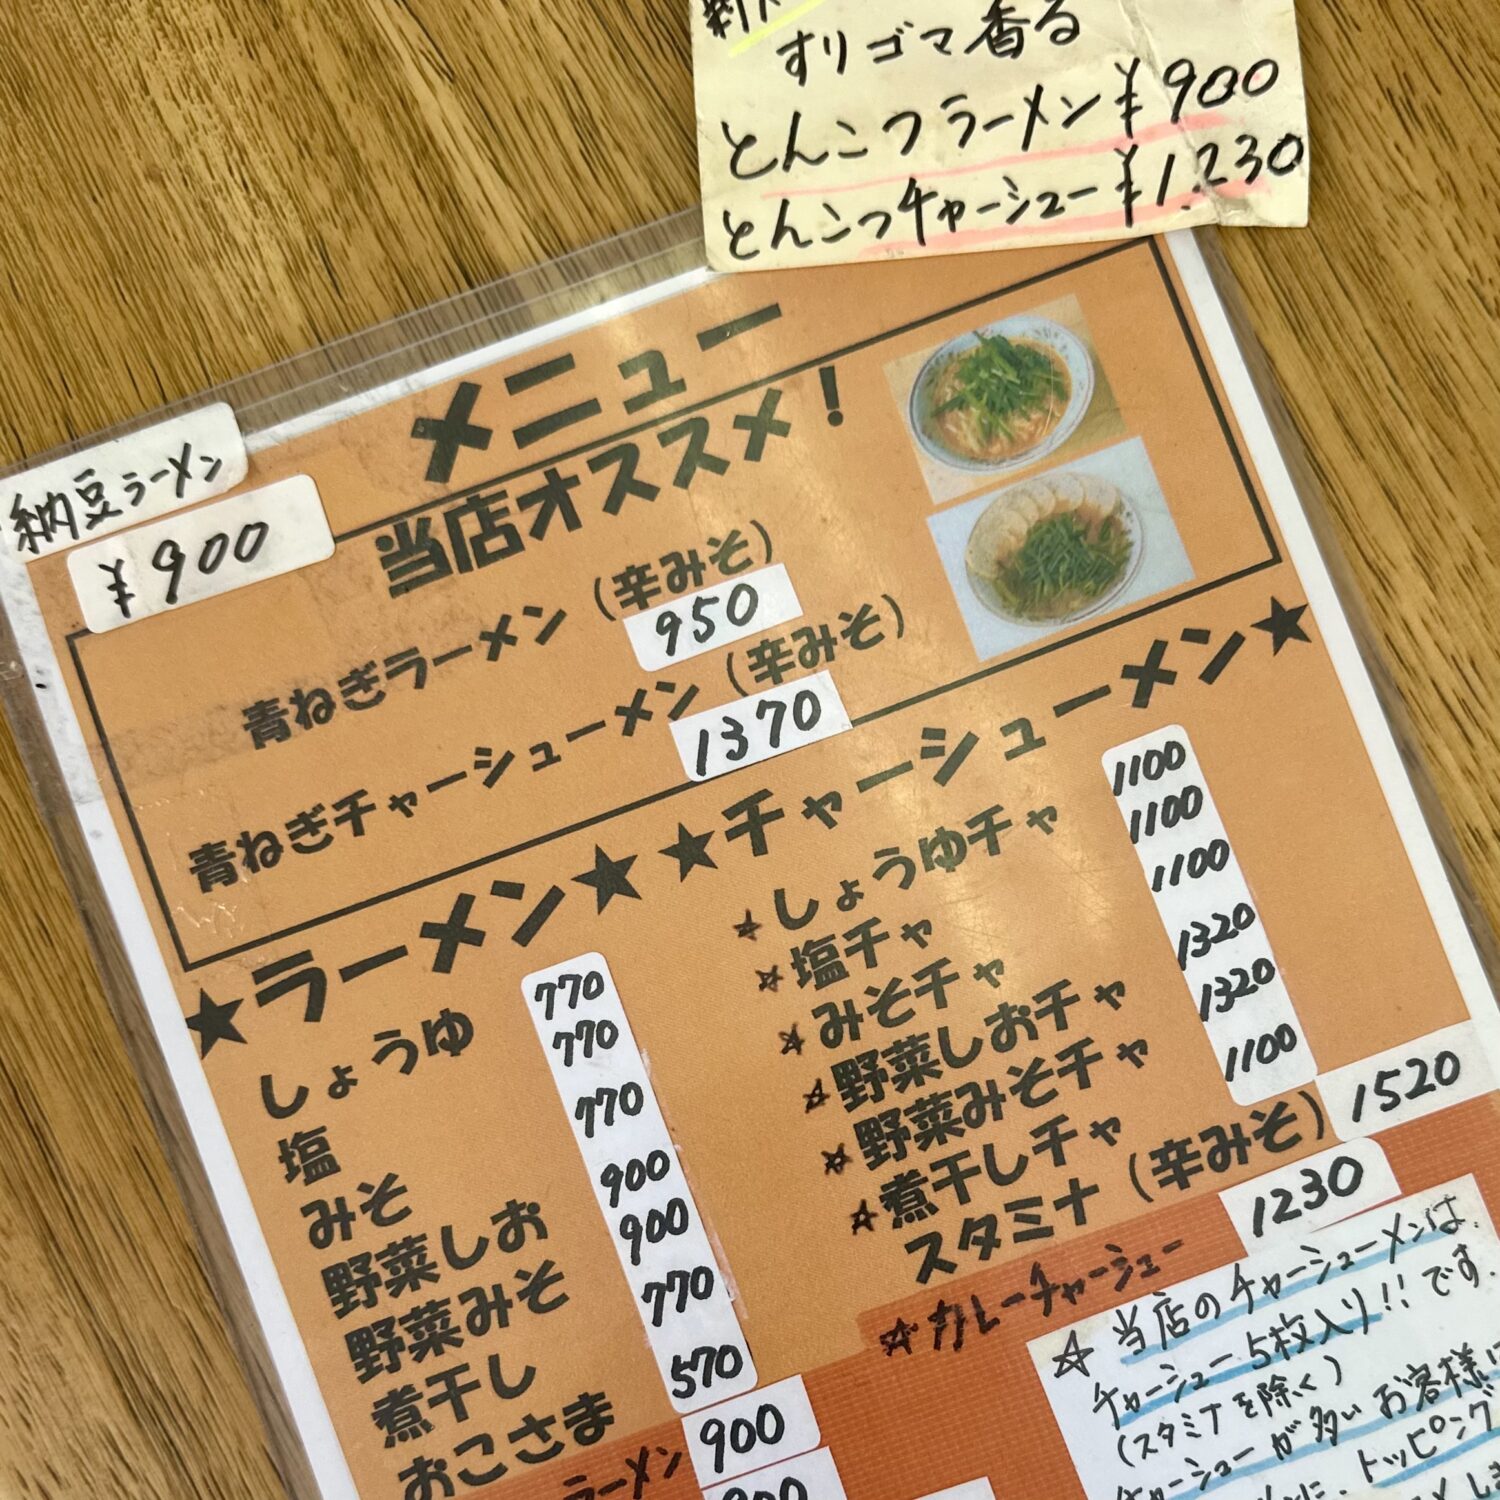 すりゴマ香る
とんこつラーメン ¥900
とんこつチャーシュー ¥1,230
納豆ラーメン
¥900
メニュー
当店オススメ!
青ねぎラーメン(辛みそ)
950
青ねぎチャーシューメン(辛みそ)
1370
★ラーメン★
しょうゆ 770
塩 770
みそ 770
野菜しお 900
野菜みそ 900
煮干し 770
おこさま 570
ラーメン 900
★チャーシューメン★
☆しょうゆチャ 1100
☆塩チャ 1100
☆みそチャ 1100
☆野菜しおチャ 1320
☆野菜みそチャ 1320
☆煮干しチャ 1100
スタミナ(辛みそ) 1520
☆カレーチャーシュー 1230
☆当店のチャーシューメンは、
チャーシュー5枚入り!!です。
(スタミナを除く)
チャーシューが多いお客様に
トッピング